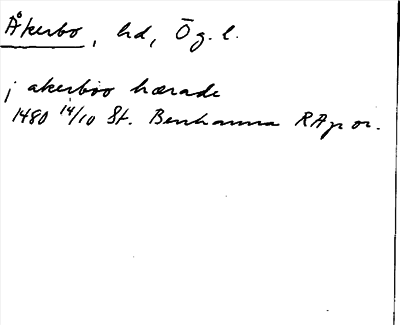 Åkerbo, hd, Ög. l.
j akerboo hærade
1480 14/10 St. Benhamra RAp or.